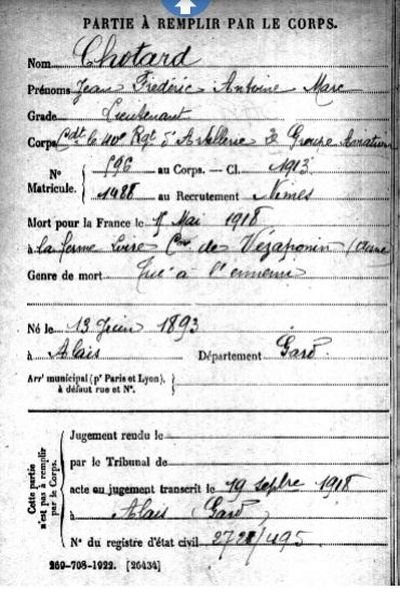 PARTIE À REMPLIR PAR LE CORPS.
Nom Chotard
Prénoms Jean Frédéric Antoine Marc
Grade Lieutenant
Corps Cdt le 40e Rgt d'Artillerie 2e Groupe
N° Matricule. 596 au Corps. — Cl. 1913
1488 au Recrutement Nîmes
Mort pour la France le 1er Mai 1918
à la ferme Loire Cne de Vézaponin (Aisne
Genre de mort Tué à l'ennemi
Né le 13 Juin 1893
à Alais Département Gard
Arrt municipal (pr Paris et Lyon), à défaut rue et N°.
Cette partie n'est pas à remplir par le Corps.
Jugement rendu le
par le Tribunal de
acte ou jugement transcrit le 19 septbre 1918
à Alais (Gard)
N° du registre d'état civil 495
269-708-1922. [26434]